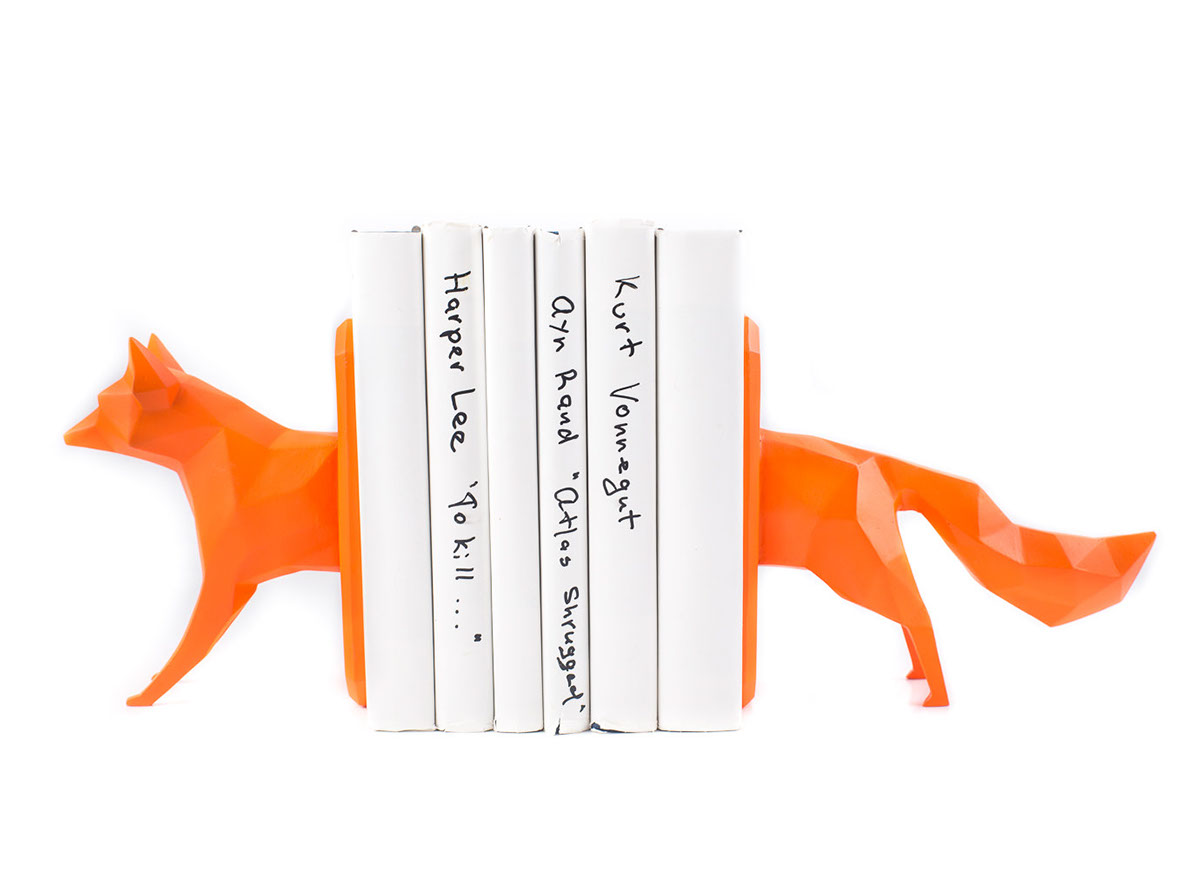 Harper Lee "To kill ...."
Ayn Rand "Atlas Shruggad"
Kurt Vonnegut